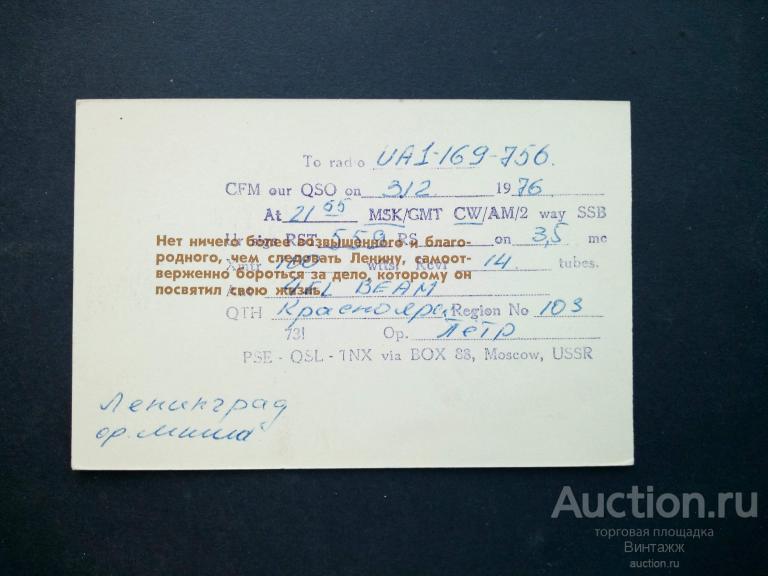 To radio UA1-169-756.
CFM our QSO on 312 1976.
At 21 55 MSK/GMT CW/AM/2 way SSB
Ur sigs RST 559 RS on 3,5 mc
Нет ничего более возвышенного и благо-
родного, чем следовать Ленину, самоот-
верженно бороться за дело, которому он
посвятил свою жизнь.
Xmtr 100 wtts. Rcvr 14 tubes.
4EL BEAM
QTH Красноярск Region No 103
73! Op. Петр
PSE - QSL - TNX via BOX 88, Moscow, USSR
Ленинград
ор. Миша
Auction.ru
торговая площадка
Винтажж
auction.ru